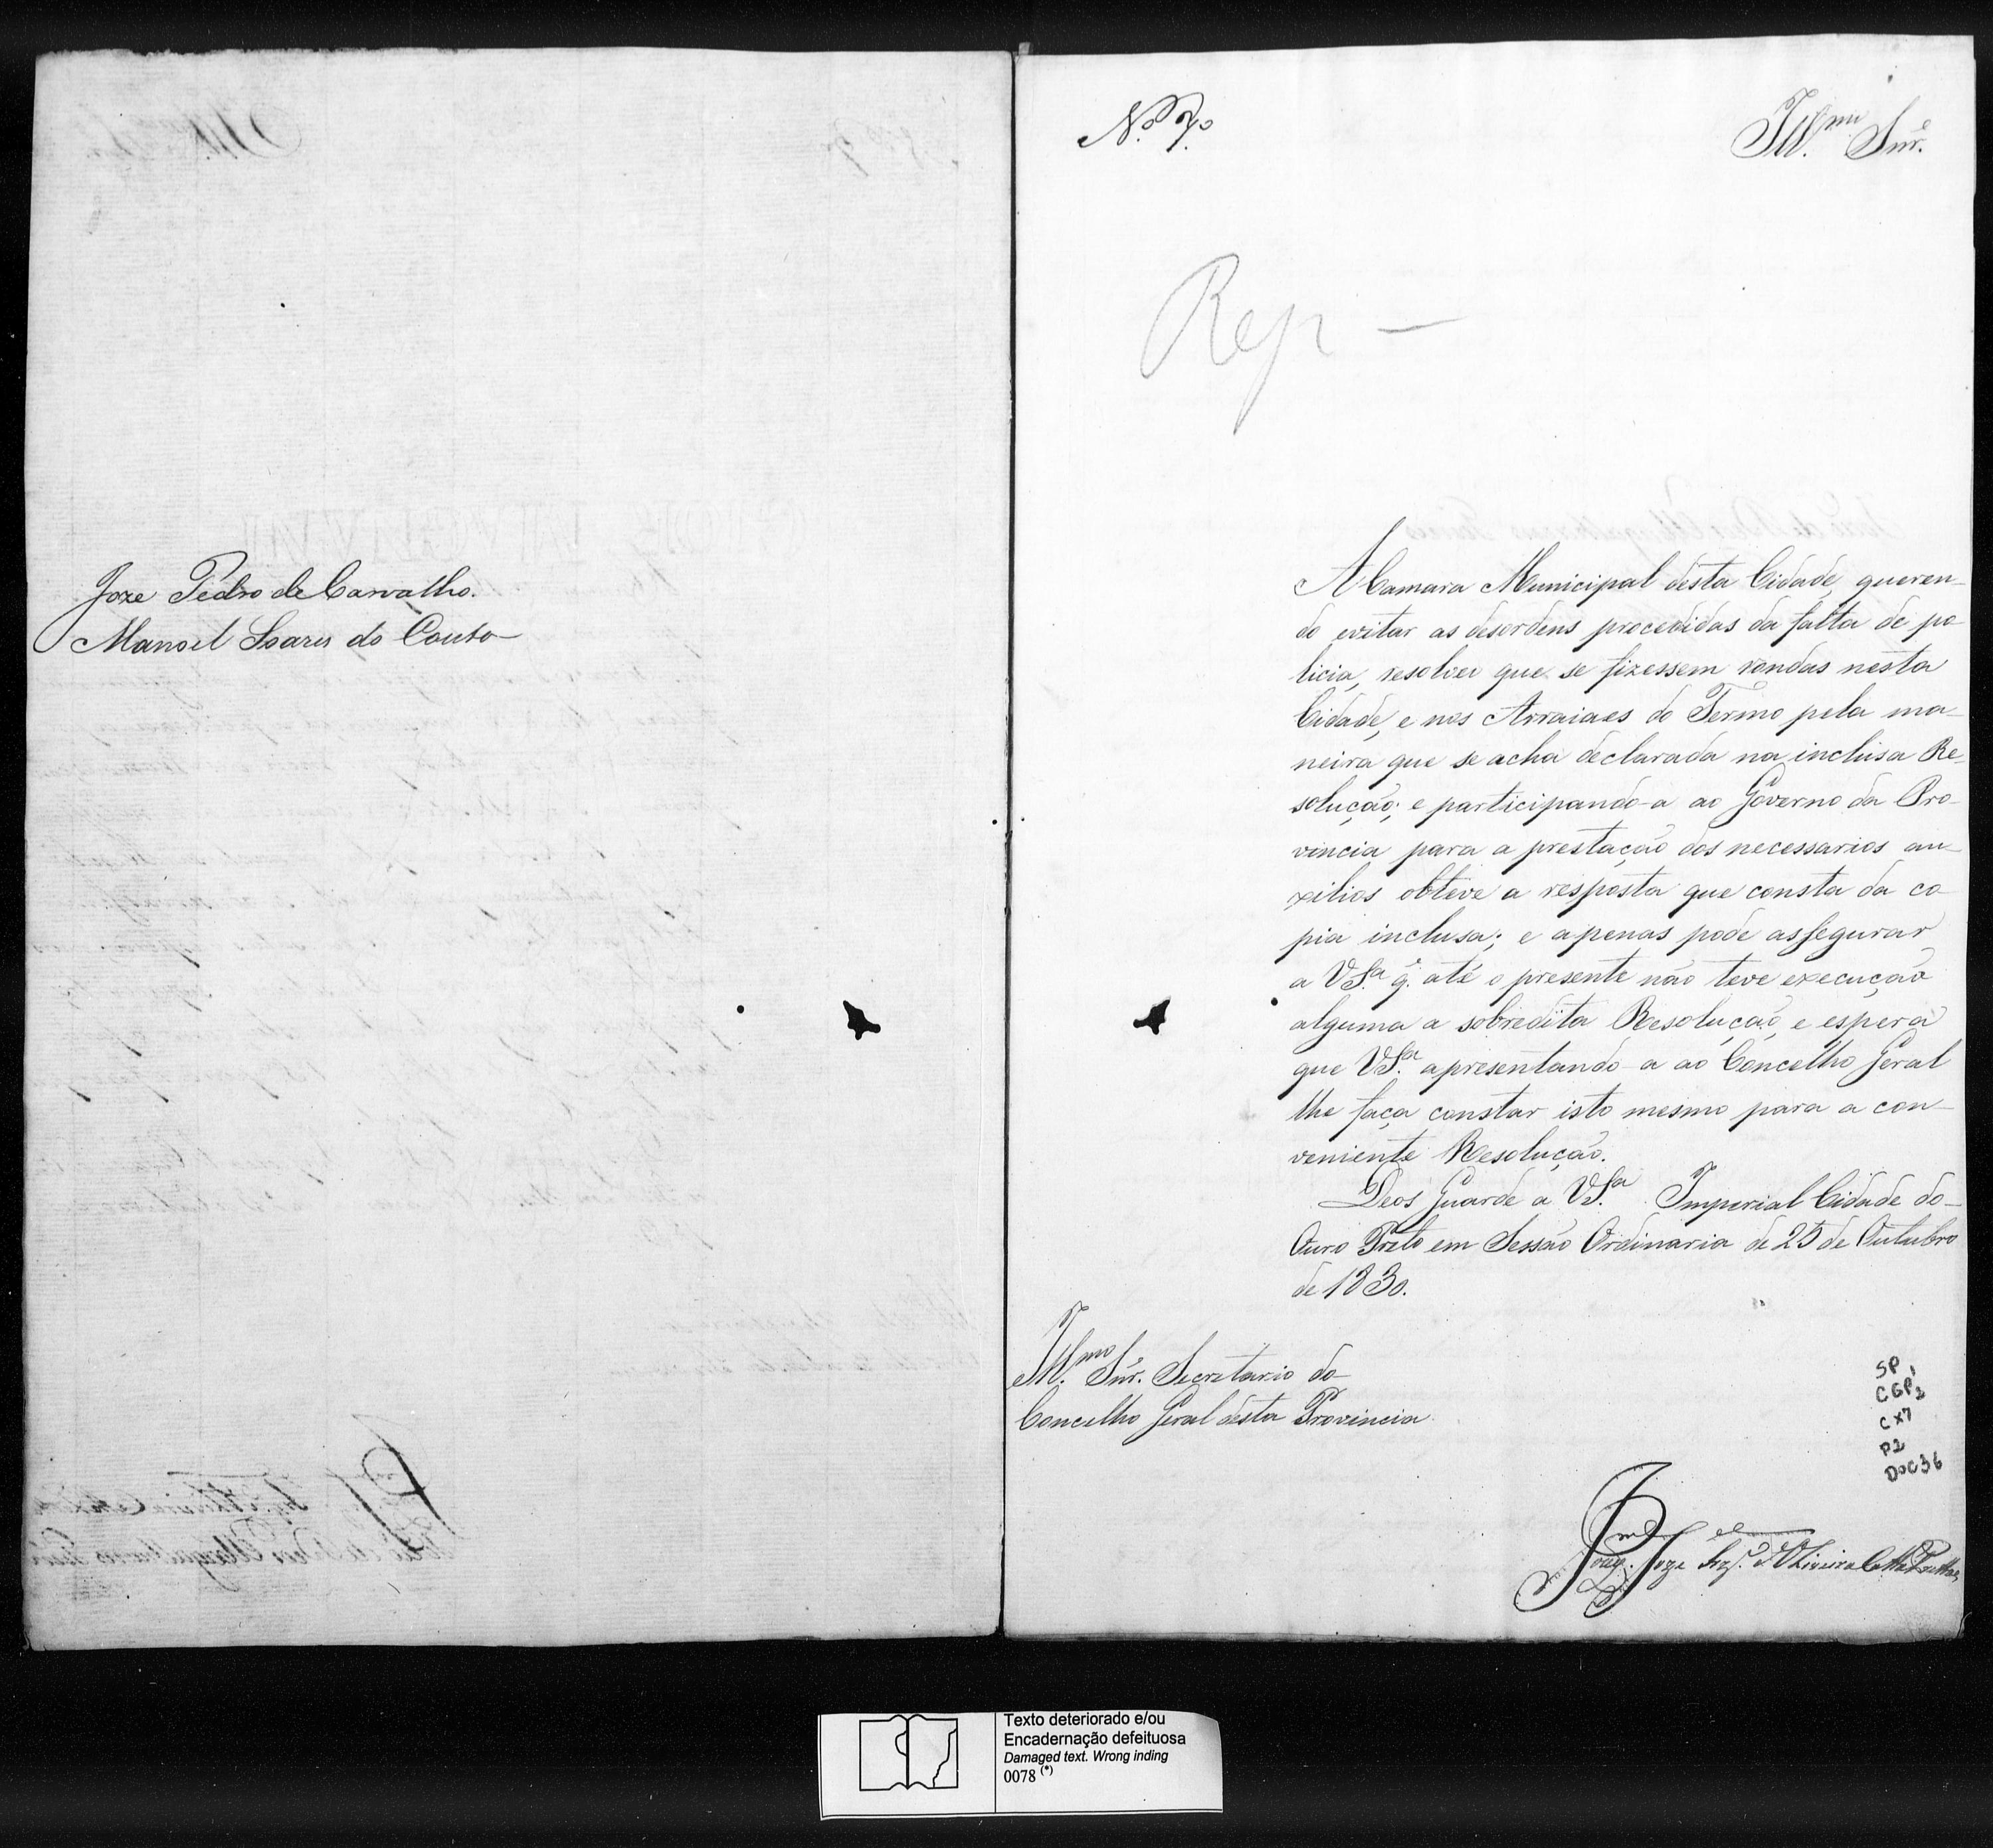 Joze Pedro de Carvalho.
Manoel Soares do Couto
N.º 7.º
Ill.mo Snr.
Rep —
A Camara Municipal desta Cidade, queren-
do evitar as desordens procedidas da falta de po-
licia, resolveu que se fizessem rondas nesta
Cidade, e nos Arraiaes do Termo pela ma-
neira que se acha declarada na inclusa Re-
solução; e participando-a ao Governo da Pro-
vincia para a prestação dos necessarios au-
xilios obteve a resposta que consta da co-
pia inclusa; e apenas pode assegurar
a VS.a q. até o presente não teve execução
alguma a sobredita Resolução, e espera
que VS.a apresentando-a ao Concelho Geral
lhe faça constar isto mesmo para a con-
veniente Resolução.
Deos Guarde a VS.a Imperial Cidade do
Ouro Preto em Sessão Ordinaria de 25 de Outubro
de 1830.
Ill.mo Snr. Secretario do
Concelho Geral desta Provincia
SP
CGP1
CX7
P2
DOC36
Joze d'Oliveira
Texto deteriorado e/ou
Encadernação defeituosa
Damaged text. Wrong inding
0078 (*)